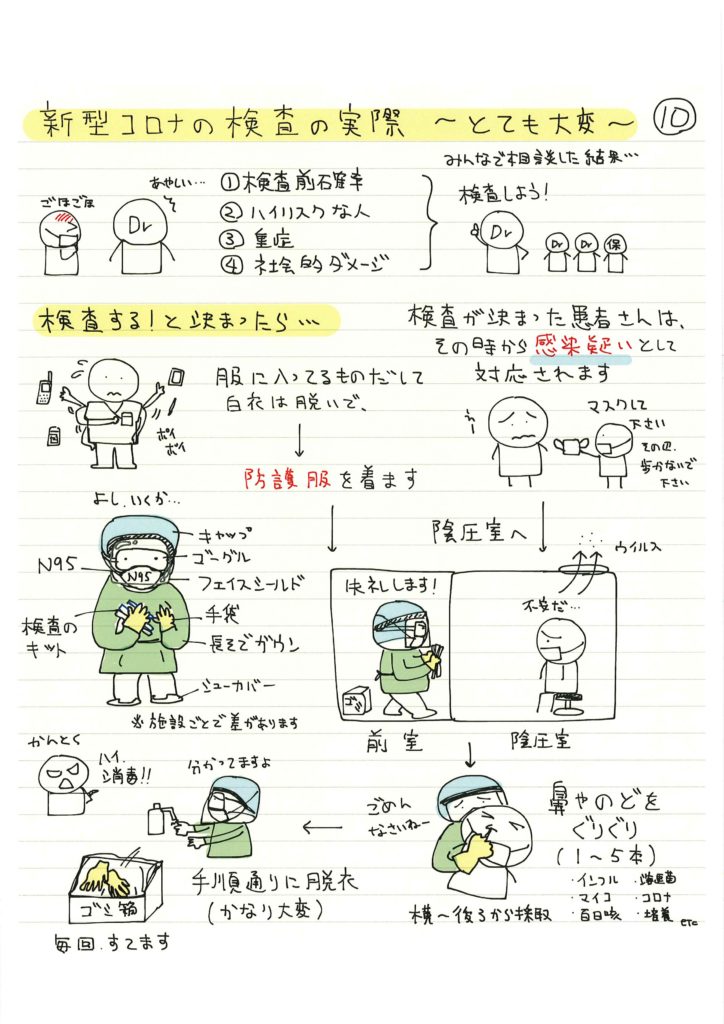 新型コロナの検査の実際 〜とても大変〜 ⑩
ごほごほ
あやしい…
Dr
①検査前確率
②ハイリスクな人
③重症
④社会的ダメージ
みんなで相談した結果…
検査しよう!
Dr
Dr Dr 保
検査する!と決まったら…
服に入ってるものだして
白衣は脱いで、
ポイ
ポイ
防護服を着ます
検査が決まった患者さんは、
その時から感染疑いとして
対応されます
マスクして
下さい
その辺
歩かないで
下さい
よし、いくか…
キャップ
ゴーグル
N95
N95
フェイスシールド
検査の
キット
手袋
長そでガウン
シューカバー
※施設ごとで差があります
陰圧室へ
ウイルス
失礼します!
不安だ…
ゴミ
前室
陰圧室
鼻やのどを
ぐりぐり
(1〜5本)
・インフル ・溶連菌
・マイコ ・コロナ
・百日咳 ・培養
etc
ごめん
なさいねー
横〜後ろから採取
分かってますよ
手順通りに脱衣
(かなり大変)
かんとく
ハイ、
消毒!!
ゴミ箱
毎回、すてます